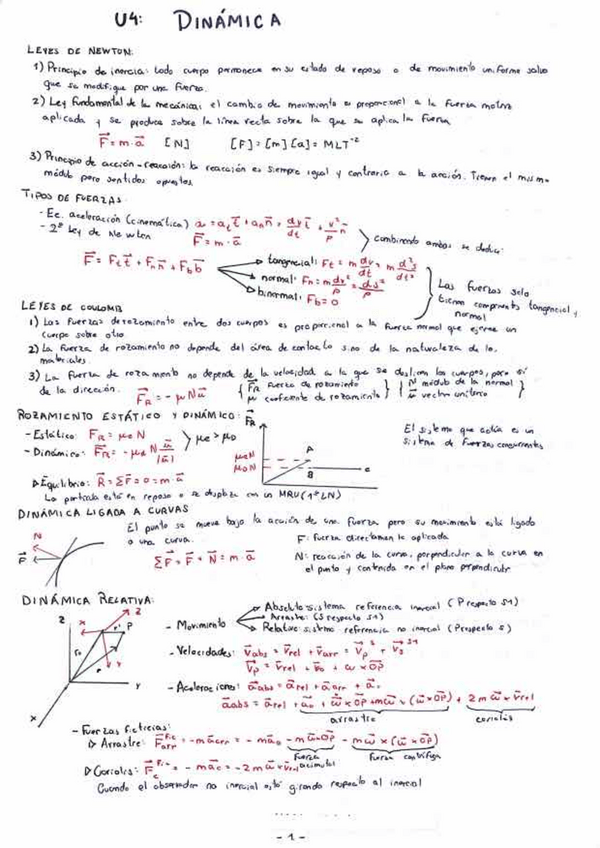 U4: DINÁMICA
LEYES DE NEWTON:
1) Principio de inercia: todo cuerpo permanece en su estado de reposo o de movimiento uniforme salvo
que se modifique por una fuerza.
2) Ley fundamental de la mecánica: el cambio de movimiento es proporcional a la fuerza motriz
aplicada y se produce sobre la línea recta sobre la que se aplica la fuerza
F⃗ = m·a⃗ [N] [F] = [m][a] = MLT⁻²
3) Principio de acción-reacción: la reacción es siempre igual y contraria a la acción. Tienen el mismo
módulo pero sentidos opuestos.
TIPOS DE FUERZAS
- Ec. aceleración (cinemática) a = aₜt⃗ + aₙn⃗ = dv/dt t⃗ + v²/ρ n⃗
- 2ª Ley de Newton F⃗ = m·a⃗
combinando ambas se deduce:
F⃗ = Fₜt⃗ + Fₙn⃗ + F_b b⃗
tangencial: Fₜ = m dv/dt = m d²s/dt²
normal: Fₙ =
binormal: F_b = 0
Las fuerzas solo
tienen componentes tangencial y
normal
LEYES DE COULOMB
1) Las fuerzas de rozamiento entre dos cuerpos es proporcional a la fuerza normal que ejerce un
cuerpo sobre otro
2) La fuerza de rozamiento no depende del área de contacto sino de la naturaleza de los
materiales.
3) La fuerza de rozamiento no depende de la velocidad a la que se deslizan los cuerpos, pero sí
de la dirección. F⃗_R = -μNu⃗
F_R fuerza de rozamiento
μ coeficiente de rozamiento
N módulo de la normal
u⃗ vector unitario
ROZAMIENTO ESTÁTICO Y DINÁMICO: F_R
- Estático: F_R = μₑN
- Dinámico: F⃗_R = N u⃗/|u⃗|
μe > μD
μeN
μDN
A
B
c
El sistema que actúa es un
sistema de fuerzas concurrentes
▷Equilibrio: R⃗ = ΣF⃗ = 0 = m·a⃗
La partícula está en reposo o se desplaza con un MRU (1ª LN)
DINÁMICA LIGADA A CURVAS
El punto se mueve bajo la acción de una fuerza pero su movimiento está ligado
a una curva.
N
F⃗
ΣF⃗ = F⃗ + N⃗ = m·a⃗
F: fuerza directamente aplicada
N: reacción de la curva, perpendicular a la curva en
el punto y contenida en el plano perpendicular
DINÁMICA RELATIVA:
z
x
z
P
r'
r₀
r
y
Y
x
- Movimiento
Absoluto: sistema referencia inercial (P respecto S1)
Arrastre: (S respecto S1)
Relativo: sistema referencia no inercial (P respecto S)
- Velocidades: v⃗abs = v⃗rel + v⃗arr =
v⃗p = v⃗rel + v⃗₀ + ω × OP⃗
- Aceleraciones: a⃗abs = a⃗rel + a⃗arr + a⃗c
a⃗abs = a⃗rel + a⃗₀ + × OP⃗ + ω⃗ × (ω⃗ × OP⃗) + 2mω⃗ × v⃗rel
arrastre coriolis
- Fuerzas ficticias:
▷ Arrastre: F⃗arr^Fic = -ma⃗arr = -ma⃗₀ - OP⃗ - mω⃗ × (ω⃗ × OP⃗)
fuerza azimutal
fuerza centrífuga
▷Coriolis: F⃗c^Fic = -ma⃗c = -2mω⃗ × v⃗rel
Cuando el observador no inercial está girando respecto al inercial
- 1 -